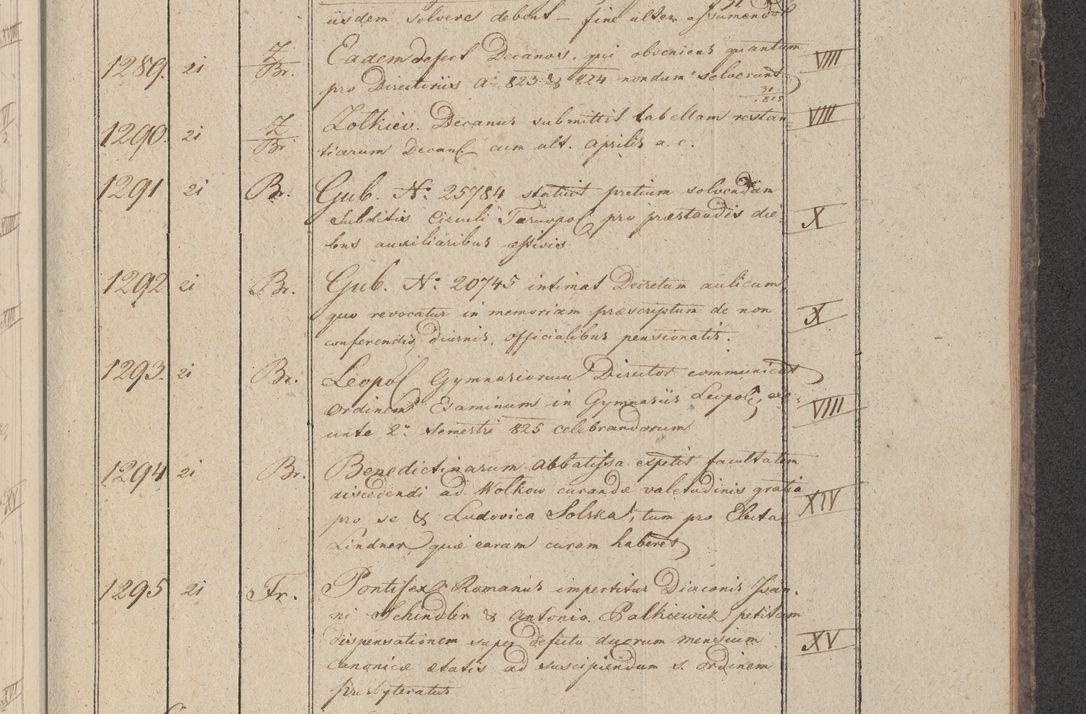 iisdem solvere debent – fine ulter. assumendo
1289. 21 Z/Br. Eadem defect Decanos, qui obveniens quantum VIII
pro Directiviis A° 823 & 824 nondum solverunt
31/825
1290. 21 Z/Br. Zolkiev. Decanus submittit tabellam restan VIII
tiarum Decanal cum ult. Aprilis a. c.
1291 21 Br. Gub. N° 25784 statuit pretium solvendum
Subditis Circuli Tarnopol pro praestandis die X
bus auxiliaribus
1292 21 Br. Gub. N° 20745 intimat Decretum aulicum,
quo revocatur in memoriam praescriptum de non X
conferendis diurnis, officialibus pensionatis.
1293. 21 Br. Leopol Gymnasiorum Director communicat
Ordinem Examinum in Gymnasiis Leopol, exe- VIII
unte 2° Semestri 825 celebrandorum
1294 21 Br. Benedictinarum Abbatissa expetit facultatem
discedendi ad Wolkow curandae valetudinis gratia XIV
pro se & Ludovica Solska, tum pro Electa
Lindner quae earam curam haberet
1295 21 Fr. Pontifex Romanus impertitur Diaconis Joan.
ni Schindler & Antonio Palkiewicz petitam
dispensationem super defectu duorum mensium XV
canonicae aetatis ad suscipiendum s. ordinem
presbyteratus